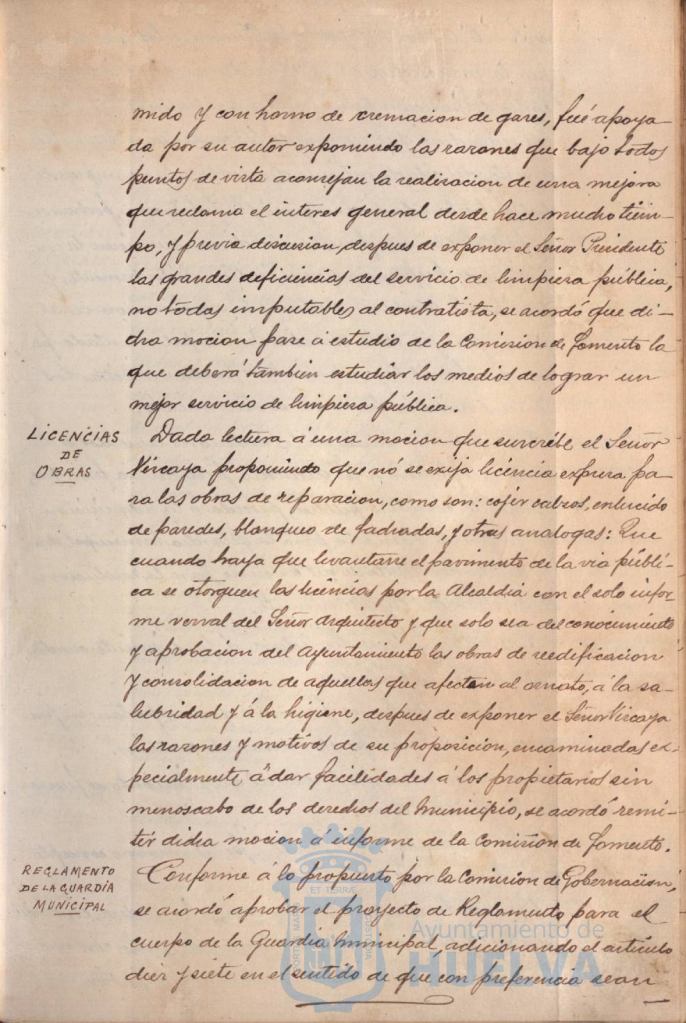 mido y con horno de cremacion de gases, fué apoya-
da por su autor exponiendo las razones que bajo todos
puntos de vista aconsejan la realizacion de una mejora
que reclama el interes general desde hace mucho tiem-
po, y previa discusion, despues de exponer el Señor Presidente
las grandes deficiencias del servicio de limpieza pública,
no todas imputables al contratista, se acordó que di-
cha mocion pase á estudio de la Comision de Fomento la
que deberá tambien estudiar los medios de lograr un
mejor servicio de limpieza pública.
LICENCIAS
DE
OBRAS
Dada lectura á una mocion que suscribe el Señor
Vizcaya proponiendo que nó se exija licencia expresa pa-
ra las obras de reparacion, como son: cojer calzos, enlucido
de paredes, blanqueo de fachadas, y otras analogas: Que
cuando haya que levantarse el pavimento de la via públi-
ca se otorguen las licencias por la Alcaldia con el solo infor-
me verval del Señor Arquitecto y que solo sea del conocimiento
y aprobacion del Ayuntamiento las obras de reedificacion
y consolidacion de aquellas que afecten al ornato, á la sa-
lubridad y á la higiene, despues de exponer el Señor Vizcaya
las razones y motivos de su proposicion, encaminadas ex-
pecialmente á dar facilidades á los propietarios sin
menoscabo de los derechos del Municipio, se acordó remi-
tir dicha mocion á informe de la Comision de Fomento.
REGLAMENTO
DE LA GUARDIA
MUNICIPAL
Conforme á lo propuesto por la Comision de Gobernacion,
se acordó aprobar el proyecto de Reglamento para el
cuerpo de la Guardia Municipal, adicionando el articulo
diez y siete en el sentido de que con preferencia sean
Ayuntamiento de
HUELVA